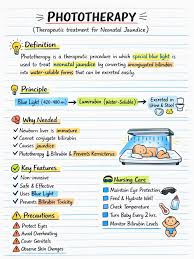 PHOTOTHERAPY
(Therapeutic treatment for Neonatal Jaundice)
Definition
Phototherapy is a therapeutic procedure in which special blue light is
used to treat neonatal jaundice by converting unconjugated bilirubin
into water-soluble forms that can be excreted easily.
Principle
Blue Light (420-480 nm) → Lumirubin (Water-Soluble) → Excreted in Urine & Stool
Why Needed
Newborn liver is immature
Cannot conjugate bilirubin
Causes jaundice
Phototherapy ↓ Bilirubin & Prevents Kernicterus
Key Features
Non-invasive
Safe & Effective
Uses Blue Light
Prevents Bilirubin Toxicity
Precautions
Protect Eyes
Avoid Overheating
Cover Genitals
Observe Skin Changes
Nursing Care
Maintain Eye Protection
Feed & Hydrate Well
Check Temperature
Turn Baby Every 2 hrs.
Monitor Bilirubin Levels